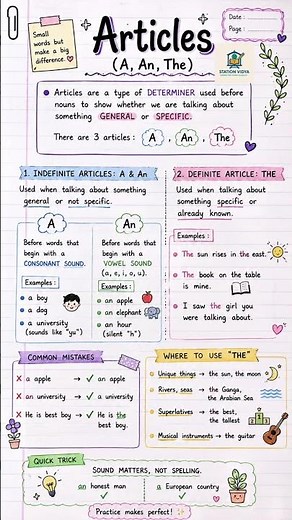 Small
words but
make a big
difference.
Articles
(A, An, The)
STATION VIDYA
Date :
Page :
Articles are a type of DETERMINER used before
nouns to show whether we are talking about
something GENERAL or SPECIFIC.
There are 3 articles : A , An , The
1. INDEFINITE ARTICLES: A & An
Used when talking about something
general or not specific.
A
Before words that
begin with a
CONSONANT SOUND.
Examples :
a boy
a dog
a university
(sounds like "yu")
An
Before words that
begin with a
VOWEL SOUND
(a, e, i, o, u).
Examples :
an apple
an elephant
an hour
(silent "h")
2. DEFINITE ARTICLE: THE
Used when talking about
something specific or
already known.
Examples :
The sun rises in the east.
The book on the table
is mine.
I saw the girl you
were talking about.
COMMON MISTAKES
✗ a apple → ✓ an apple
✗ an university → ✓ a university
✗ He is best boy → ✓ He is the
best boy.
WHERE TO USE "THE"
Unique things → the sun, the moon
Rivers, seas → the Ganga,
the Arabian Sea
Superlatives → the best,
the tallest
Musical instruments → the guitar
QUICK TRICK
SOUND MATTERS, NOT SPELLING.
an honest man ✓
a European country ✓
Practice makes perfect!